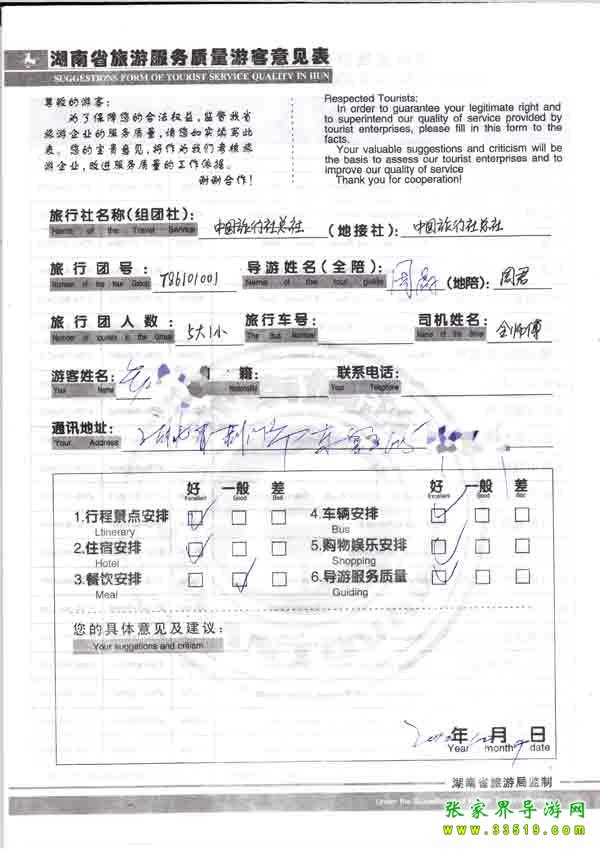 湖南省旅游服务质量游客意见表
SUGGESTIONS FORM OF TOURIST SERVICE QUALITY IN HUN
尊敬的游客：
为了保障您的合法权益，监督我省
旅游企业的服务质量，请您如实填写此
表。您的宝贵意见，将作为我们考核旅
游企业，改进服务质量的工作依据。
谢谢合作！
Respected Tourists:
In order to guarantee your legitimate right and
to superintend our quality of service provided by
tourist enterprises, please fill in this form to the
facts.
Your valuable suggestions and criticism will be
the basis to assess our tourist enterprises and to
improve our quality of service
Thank you for cooperation!
旅行社名称(组团社)： 中国旅行社总社 (地接社)： 中国旅行社总社
Name of the Travel Service
旅行团号： 786101001 导游姓名(全陪)： 周 (地陪)： 周君
Number of the tour Group Name of the tour guide
旅行团人数： 5大1小 旅行车号： 司机姓名： 全师傅
Number of tourists in the Group The Bus Number Name of the Driver
游客姓名： 籍： 联系电话：
Your Name Nationality Your Telephone
通讯地址： 湖北省荆门市
Your Address
好 一般 差 好 一般 差
Excellent Good Bad Excellent Good Bad
1.行程景点安排 4.车辆安排
Ltinerary Bus
2.住宿安排 5.购物娱乐安排
Hotel Shopping
3.餐饮安排 6.导游服务质量
Meal Guiding
您的具体意见及建议：
Your suggations and critism
年 月 日
Year month date
湖南省旅游局监制
Under the
张家界导游网
www.33519.com